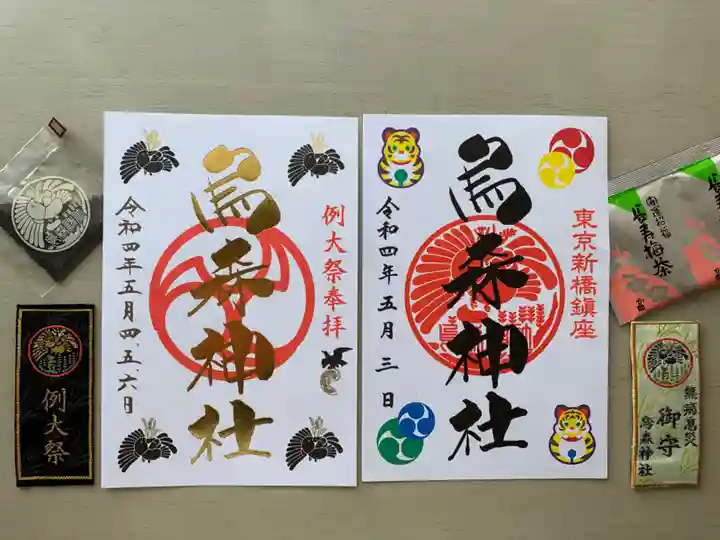 烏森神社
例大祭奉拝
令和四年五月四、五、六日
烏森神社
東京新橋鎮座
令和四年五月三日
例大祭
無病息災
御守
烏森神社
梅茶